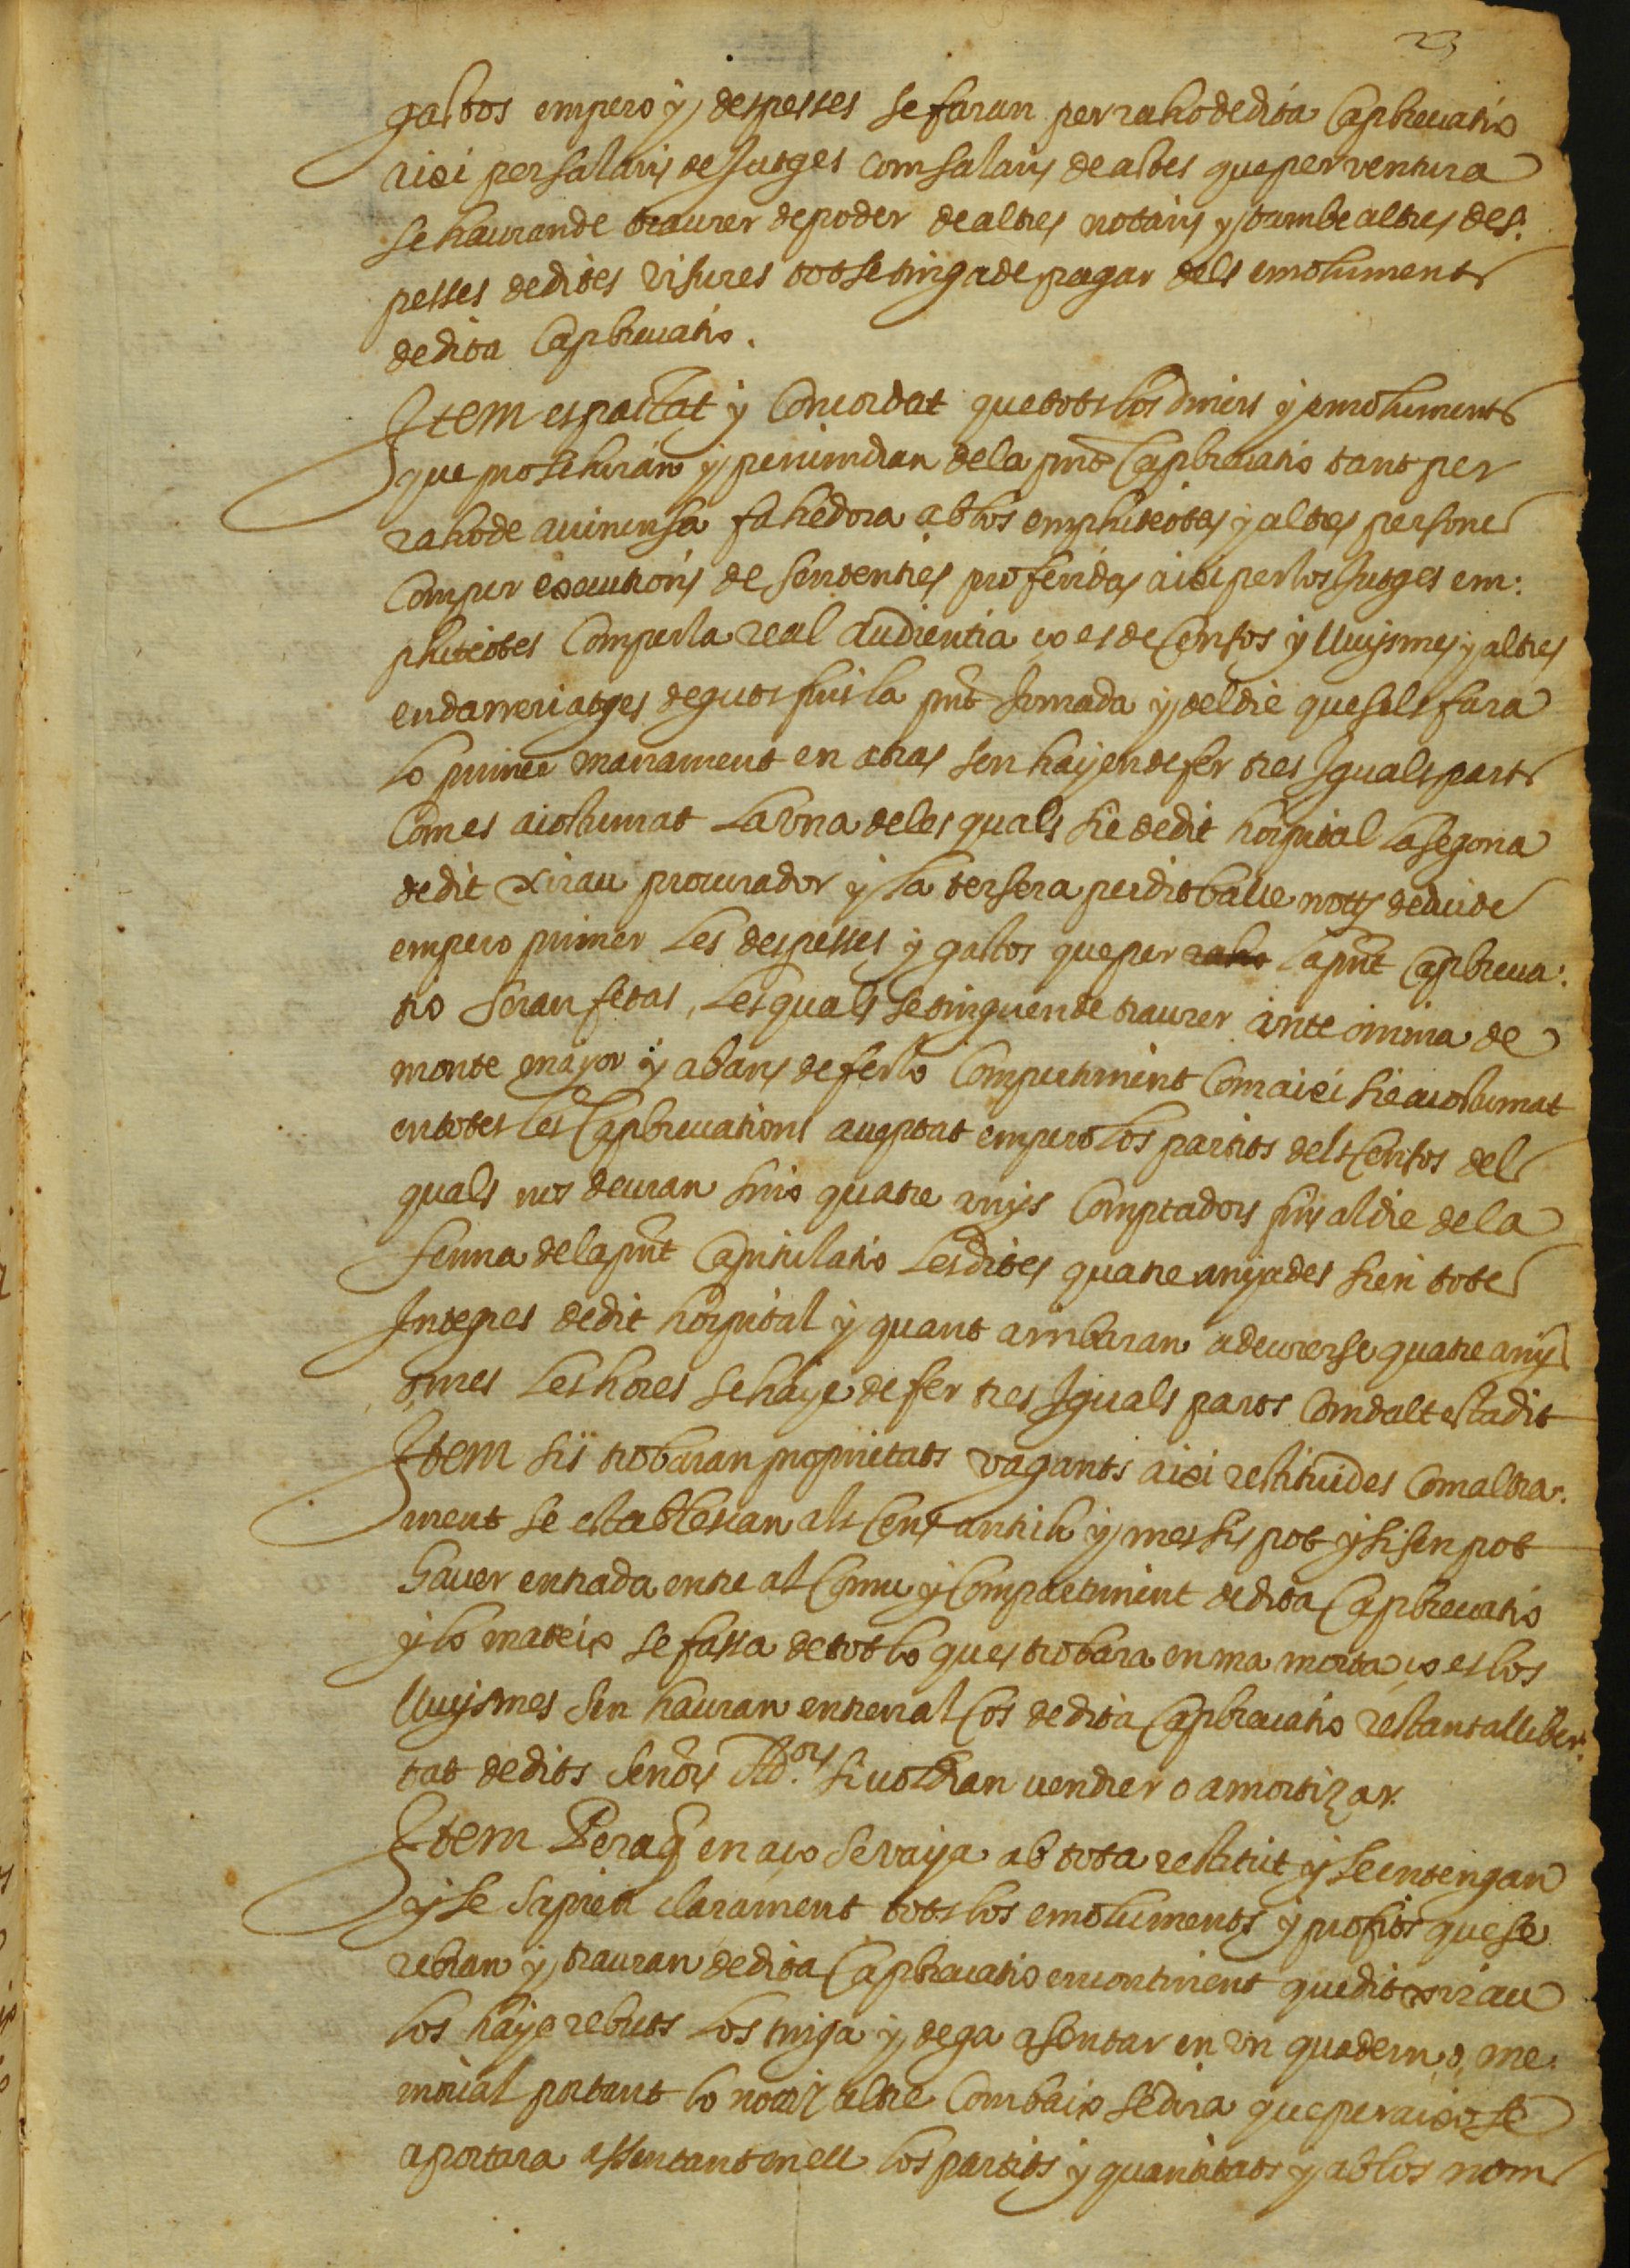 23
gastos empero y despesses se faran per raho de dita Capbreuatio
aixi per salaris de Jutges com salaris de actes que per ventura
se hauran de traurer de poder de altres notaris y tambe altres des:
pesses de dites visures tot se tinga de pagar dels emoluments
de dita Capbreuatio.
Item es pactat y Concordat que tots los diners y emoluments
que prosehiran y peruindran de la pnt Capbreuatio tant per
raho de auinensa fahedora ab los emphiteotes y altres persones
Com per executions de sententies proferidas aixi per los Jutges em:
phiteotes Com per la real Audientia ço es de Censos y lluysmes y altres
endarreriatges deguts fins la pnt Jornada y del die que sels fara
lo primer manament en atras sen hajen de fer tres Iguals parts
Com es acostumat La vna de les quals sie de dit hospital La segona
de dit Xirau procurador y la tersera per dit Batlle nott deduides
empero primer Les despesses y gastos que per raho la pnt Capbreua:
tio seran fetas, Les quals se tinguen de traurer ante omnia de
monte major y abans de fer lo Compartiment Com aixi sie acostumat
en totes les Capbreuations acceptat empero los partits dels Censos dels
quals nos deuran sino quatre anys Comptadors fins al die de la
ferma de la pnt Capitulatio Les dites quatre anyades sien totes
Integres de dit hospital y quant arribaran a deurerse quatre anys
o, mes Les hores se haje de fer tres Iguals parts Com dalt esta dit
Item sis trobaran proprietats vagants aixi restituides Com altra:
ment se establescan als Cens antich y mes sis pot y si sen pot
hauer entrada entre al Comu y Compartiment de dita Capbreuatio
y lo mateix se fassa de tot lo ques trobara en ma morta ço es los
lluysmes sen hauran entren al Cos de dita Capbreuatio restant a lliber:
tat de dits senors Ad.ors si uoldran vendrer o amortizar.
Item Peraq en aço se vaya ab tota rectitut y se entengan
y se sapien clarament tots los emoluments y profits que se
rebran y trauran de dita Capbreuatio encontinent que dit Xirau
los haje rebuts Los tinga y dega asentar en vn quadern o, me:
morial portant lo nott altre Com baix se dira que per aixo se
aportara assentant en ell los partits y quantitats y ab los noms